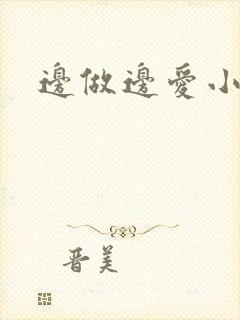 邊做邊愛小
晉美